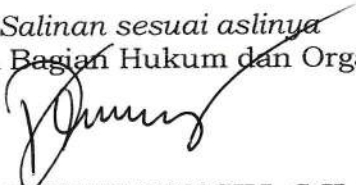 Salinan sesuai aslinya
Bagian Hukum dan Orga